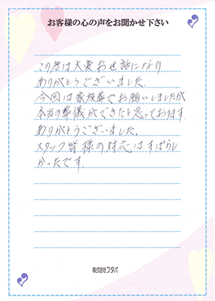 お客様の心の声をお聞かせ下さい
この度は大変お世話になり
ありがとうございました。
今回は家族葬でお願いしましたが
本当の葬儀ができたと思っております
ありがとうございました。
スタッフ皆様の対応はすばらし
かったです。
株式会社フタバ